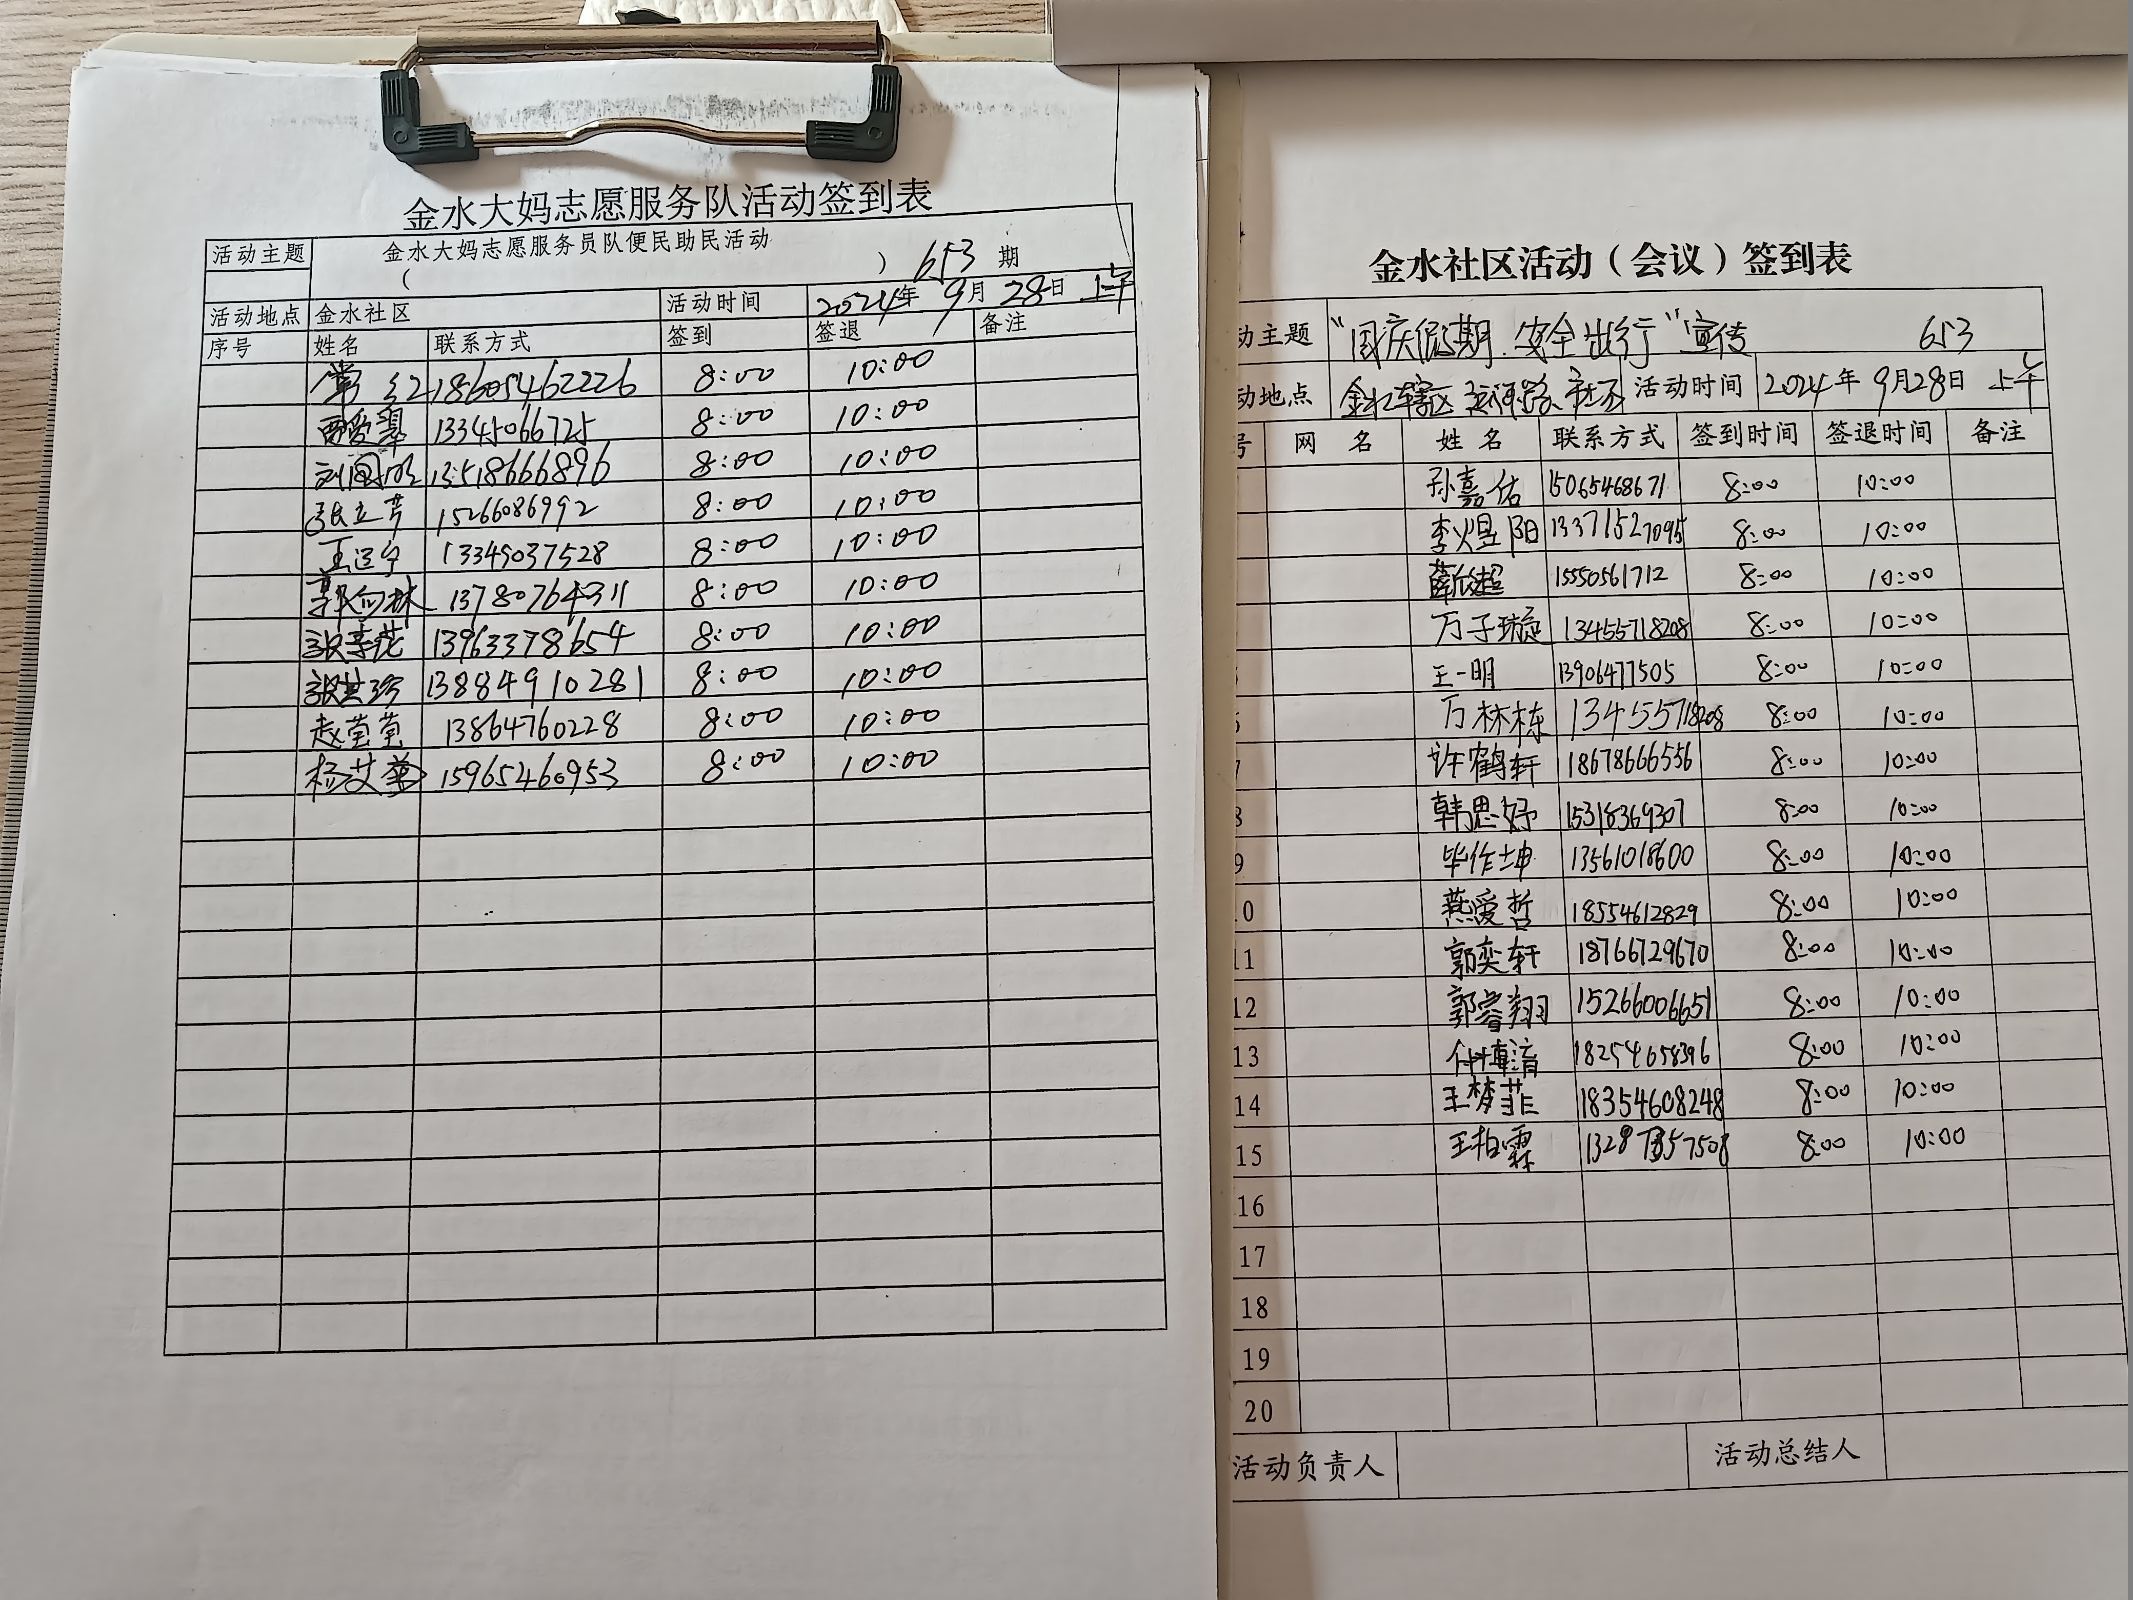 金水大妈志愿服务队活动签到表
活动主题 金水大妈志愿服务员队便民助民活动
( ) 653 期
活动地点 金水社区 活动时间 2024年 9月 28日 上午
序号 姓名 联系方式 签到 签退 备注
常红 18605462226 8:00 10:00
贾爱翠 13345066725 8:00 10:00
刘国明 13518666896 8:00 10:00
张立芳 15266086992 8:00 10:00
王运宁 13345037528 8:00 10:00
郭向林 13780764311 8:00 10:00
张季花 13963378654 8:00 10:00
13884910281 8:00 10:00
赵莹莹 13864760228 8:00 10:00
杨艾华 15965460953 8:00 10:00
金水社区活动（会议）签到表
动主题 “国庆假期.安全出行”宣传 653
动地点 金水辖区 活动时间 2024年 9月28日 上午
号 网 名 姓 名 联系方式 签到时间 签退时间 备注
孙嘉佑 15065468671 8:00 10:00
李煜阳 13371527095 8:00 10:00
薛欣超 15550561712 8:00 10:00
万子璇 13455718208 8:00 10:00
王一明 13906477505 8:00 10:00
万林栋 13455718208 8:00 10:00
7 许鹤轩 18678666556 8:00 10:00
8 韩思妤 15318369307 8:00 10:00
9 毕作坤 13561018600 8:00 10:00
10 燕爱哲 18554612829 8:00 10:00
11 郭奕轩 18766729670 8:00 10:00
12 郭睿翔 15266006651 8:00 10:00
13 付博清 18254658396 8:00 10:00
14 王梦菲 18354608248 8:00 10:00
15 王柏霖 8:00 10:00
16
17
18
19
20
活动负责人 活动总结人